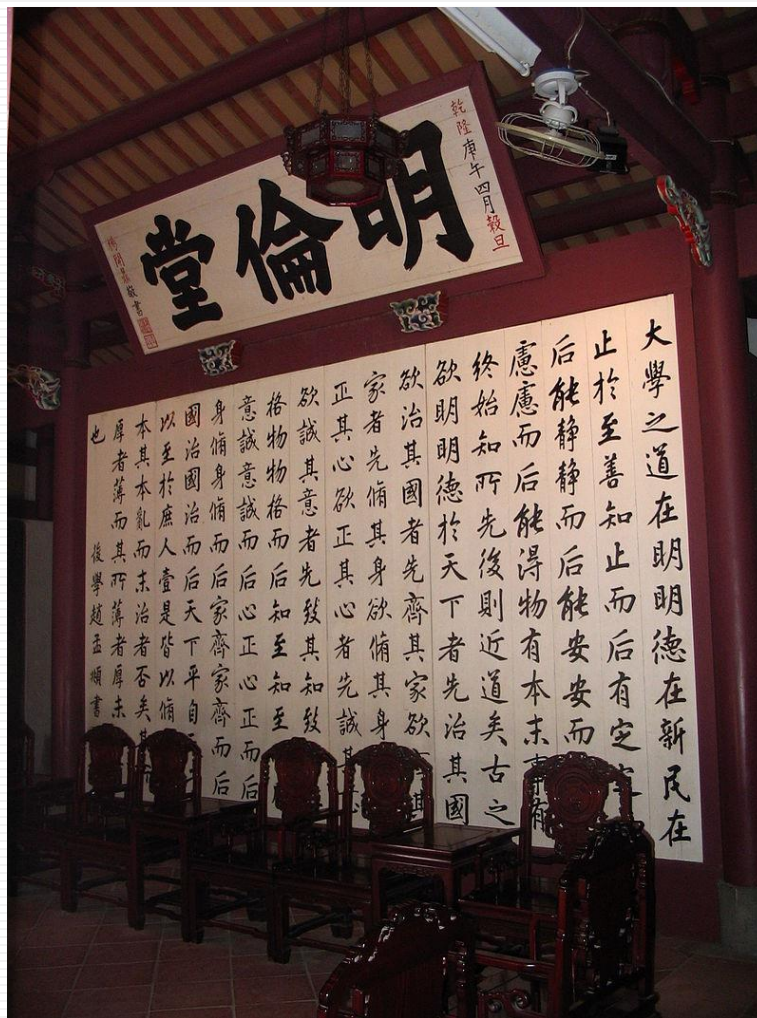 明倫堂
乾隆庚午四月穀旦
敬書
大學之道在明明德在新民在
止於至善知止而后有定
后能静静而后能安安而
慮慮而后能得物有本末事有
終始知所先後則近道矣古之
欲明明德於天下者先治其國
欲治其國者先齊其家欲
家者先脩其身欲脩其身
正其心欲正其心者先誠其
欲誠其意者先致其知致
格物物格而后知至知至
意誠意誠而后心正心正而后
身脩身脩而后家齊家齊而后
國治國治而后天下平自
以至於庶人壹是皆以脩
本其本亂而末治者否矣其
厚者薄而其所薄者厚未
也
後學趙孟頫書